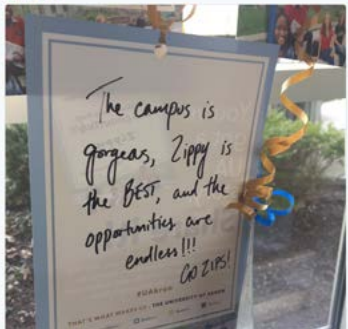 The campus is
gorgeous, Zippy is
the BEST, and the
opportunities are
endless!!!
GO ZIPS!
#UAkron
THAT'S WHAT MAKES US THE UNIVERSITY OF AKRON